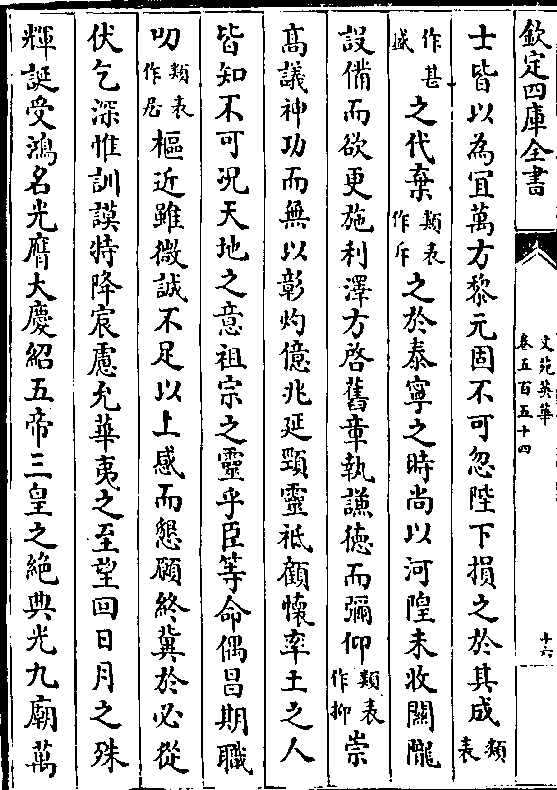 欽定四庫全書
文苑英華
卷五百五十四
十六
士皆以為冝萬方黎元固不可忽陛下損之於其成類表
作甚盛之代棄類表作斥之於泰寧之時尚以河隍未收關隴
設備而欲更施利澤方啓舊章執謙德而彌仰類表作抑崇
髙議神功而無以彰灼億兆延頸靈祗顧懷率土之人
皆知不可况天地之意祖宗之靈乎臣等命偶昌期職
叨類表作忝樞近雖微誠不足以上感而懇願終冀於必從
伏乞深惟訓謨特降宸慮允華夷之至望回日月之殊
輝誕受鴻名光膺大慶紹五帝三皇之絶典光九廟萬